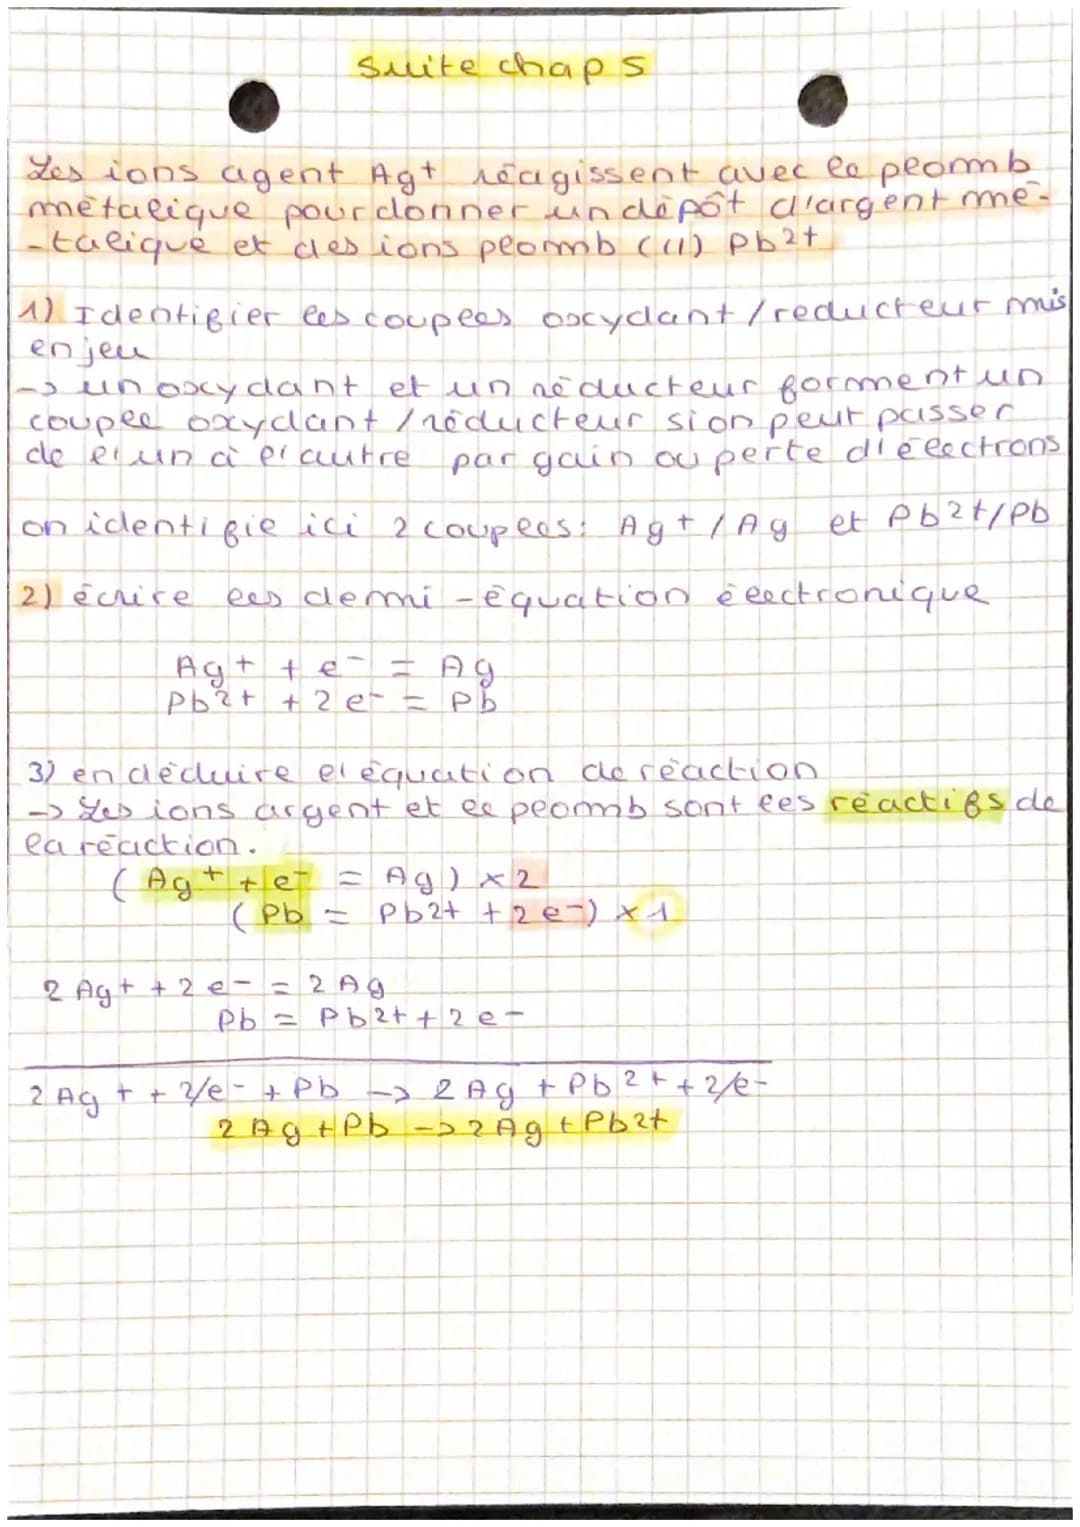 suite chap 5
Les ions agent Ag+ réagissent avec le plomb
métalique pour donner un dépôt d'argent mé-
-talique et des ions plomb (II) Pb2+
1) Identifier les couples oxydant / reducteur mis
en jeu
-> un oxydant et un réducteur forment un
couple oxydant / réducteur si on peut passer
de l'un à l'autre par gain ou perte d'électrons
on identifie ici 2 couples: Ag+ / Ag et Pb2+/Pb
2) écrire les demi-équation électronique
Ag+ + e- = Ag
Pb2+ + 2e- = Pb
3) en déduire l'équation de réaction
-> Les ions argent et le plomb sont les réactifs de
la réaction.
( Ag+ + e- = Ag) x 2
( Pb = Pb2+ + 2e-) x 1
2 Ag+ + 2e- = 2 Ag
Pb = Pb2+ + 2e-
2 Ag+ + 2e- + Pb -> 2 Ag + Pb2+ + 2e-
2 Ag + Pb -> 2 Ag + Pb2+